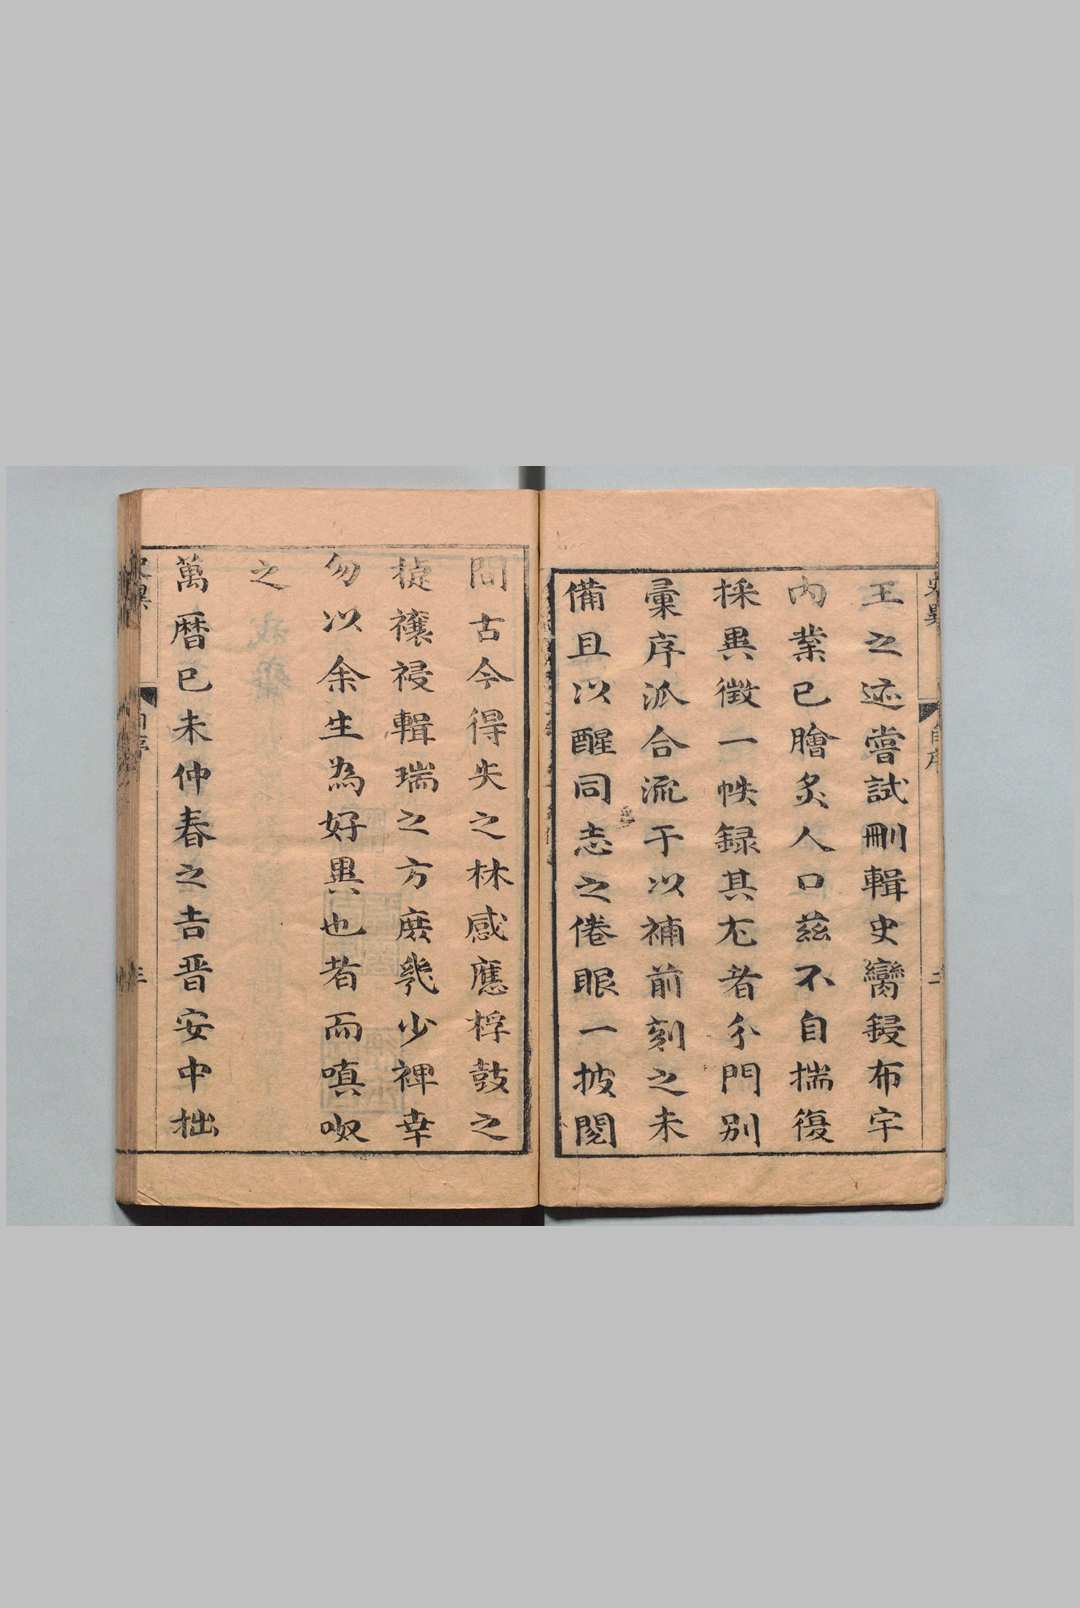 王之迹嘗試刪輯史臠鋟布宇
內業已膾炙人口茲不自揣復
採異徵一帙録其尤者分門別
彙序泒合流于以補前刻之未
備且以醒同志之倦眼一披閱
間古今得失之林感應桴鼓之
捷禳祲輯瑞之方庶幾少裨幸
勿以余生為好異也者而嗔呶
之
萬曆已未仲春之吉晋安中拙